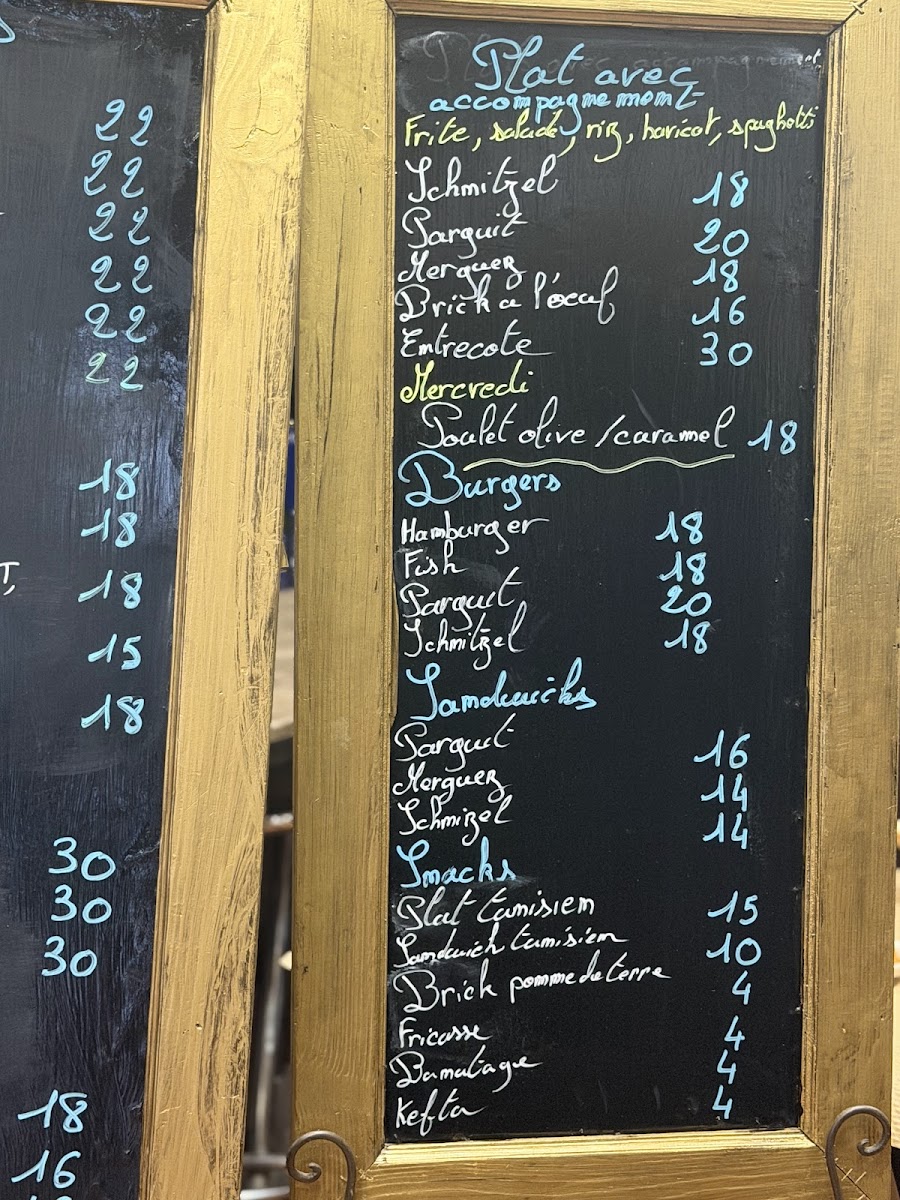 22
22
22
22
22
22
18
18
T,
18
15
18
30
30
30
18
16
Plat avec
accompagnement
Frite, salade, riz, haricot, spaghetti
Schnitzel 18
Parguit 20
Merguez 18
Brick a l'oeuf 16
Entrecote 30
Mercredi
Poulet olive/caramel 18
Burgers
Hamburger 18
Fish 18
Parguit 20
Schnitzel 18
Sandwichs
Parguit 16
Merguez 14
Schnizel 14
Snacks
Plat tunisien 15
Sandwich tunisien 10
Brick pomme de terre 4
Fricasse 4
Banatage 4
Kefta 4